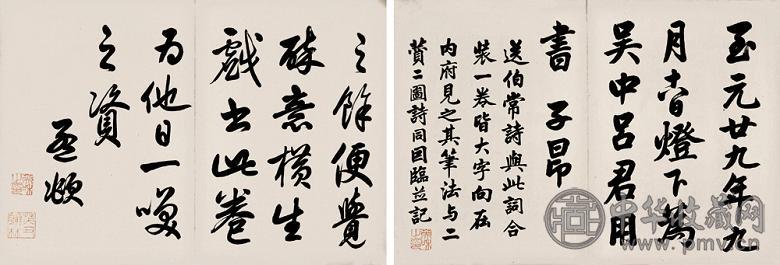 至元廿九年九
月日燈下為
吳中呂君用
書 子昂
送伯常詩與此詞合
裝一卷皆大字向在
內府見之其筆法與二
贊二圖詩同因臨並記
之餘便覺
醉意橫生
戲書此卷
為他日一咲
之資
孟頫
中华收藏网
www.pmv.cn